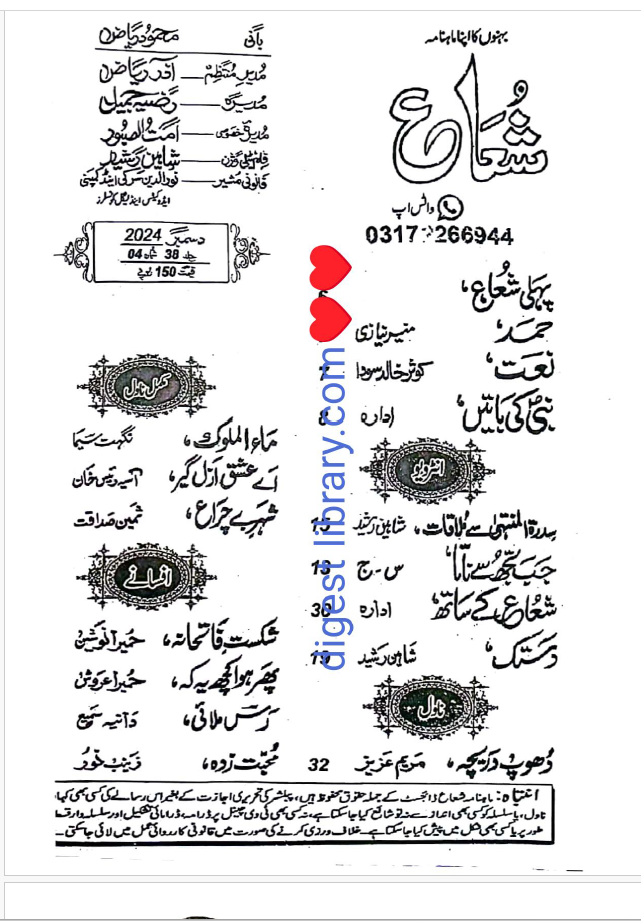 بہنوں کا اپنا ماہنامہ
شعاع
واٹس اپ
0317 266944
بانی محمود ریاض
مدیر منتظم آذر ریاض
مدیرہ رضیہ جمیل
مدیرہ خصوصی امت الصبور
شاہین رشید
قانونی مشیر نورالدین سرکی اینڈ کمپنی
ایڈوکیٹس اینڈ لیگل کونسلرز
دسمبر 2024
جلد 38 شمارہ 04
قیمت 150 روپے
پہلی شعاع، 6
حمد، منیر نیازی
نعت، کوثر خالد سودا 7
نبیؐ کی باتیں، ادارہ 8
انٹرویو
سدرۃ المنتہیٰ سے ملاقات، شاہین رشید 15
جب تجھ سے ناتا، س۔ج 13
شعاع کے ساتھ، ادارہ 30
دستک، شاہین رشید 19
ناول
دھوپ دریچہ، مریم عزیز 32
مکمل ناول
ماء الملوک، نگہت سیما
اے عشق ازل گیر، آسیہ رئیس خان
شہرے چراغ، ثمین صداقت
افسانے
شکست فاتحانہ، حمیرا نوشین
پھر ہوا کچھ یہ کہ، حمیرا عروش
رس ملائی، دانیہ سمیع
محبت زدہ، زینب نور
انتباہ: ماہنامہ شعاع ڈائجسٹ کے جملہ حقوق محفوظ ہیں، پبلشر کی تحریری اجازت کے بغیر اس رسالے کی کسی بھی کہانی،
ناول، یا سلسلہ کو کسی بھی انداز سے نہ تو شائع کیا جا سکتا ہے، نہ کسی بھی ٹی وی چینل پر ڈرامہ، ڈرامائی تشکیل اور سلسلہ وار قسط کے
طور پر یا کسی بھی شکل میں پیش کیا جا سکتا ہے۔ خلاف ورزی کرنے کی صورت میں قانونی کارروائی عمل میں لائی جا سکتی ہے۔
digest library.com